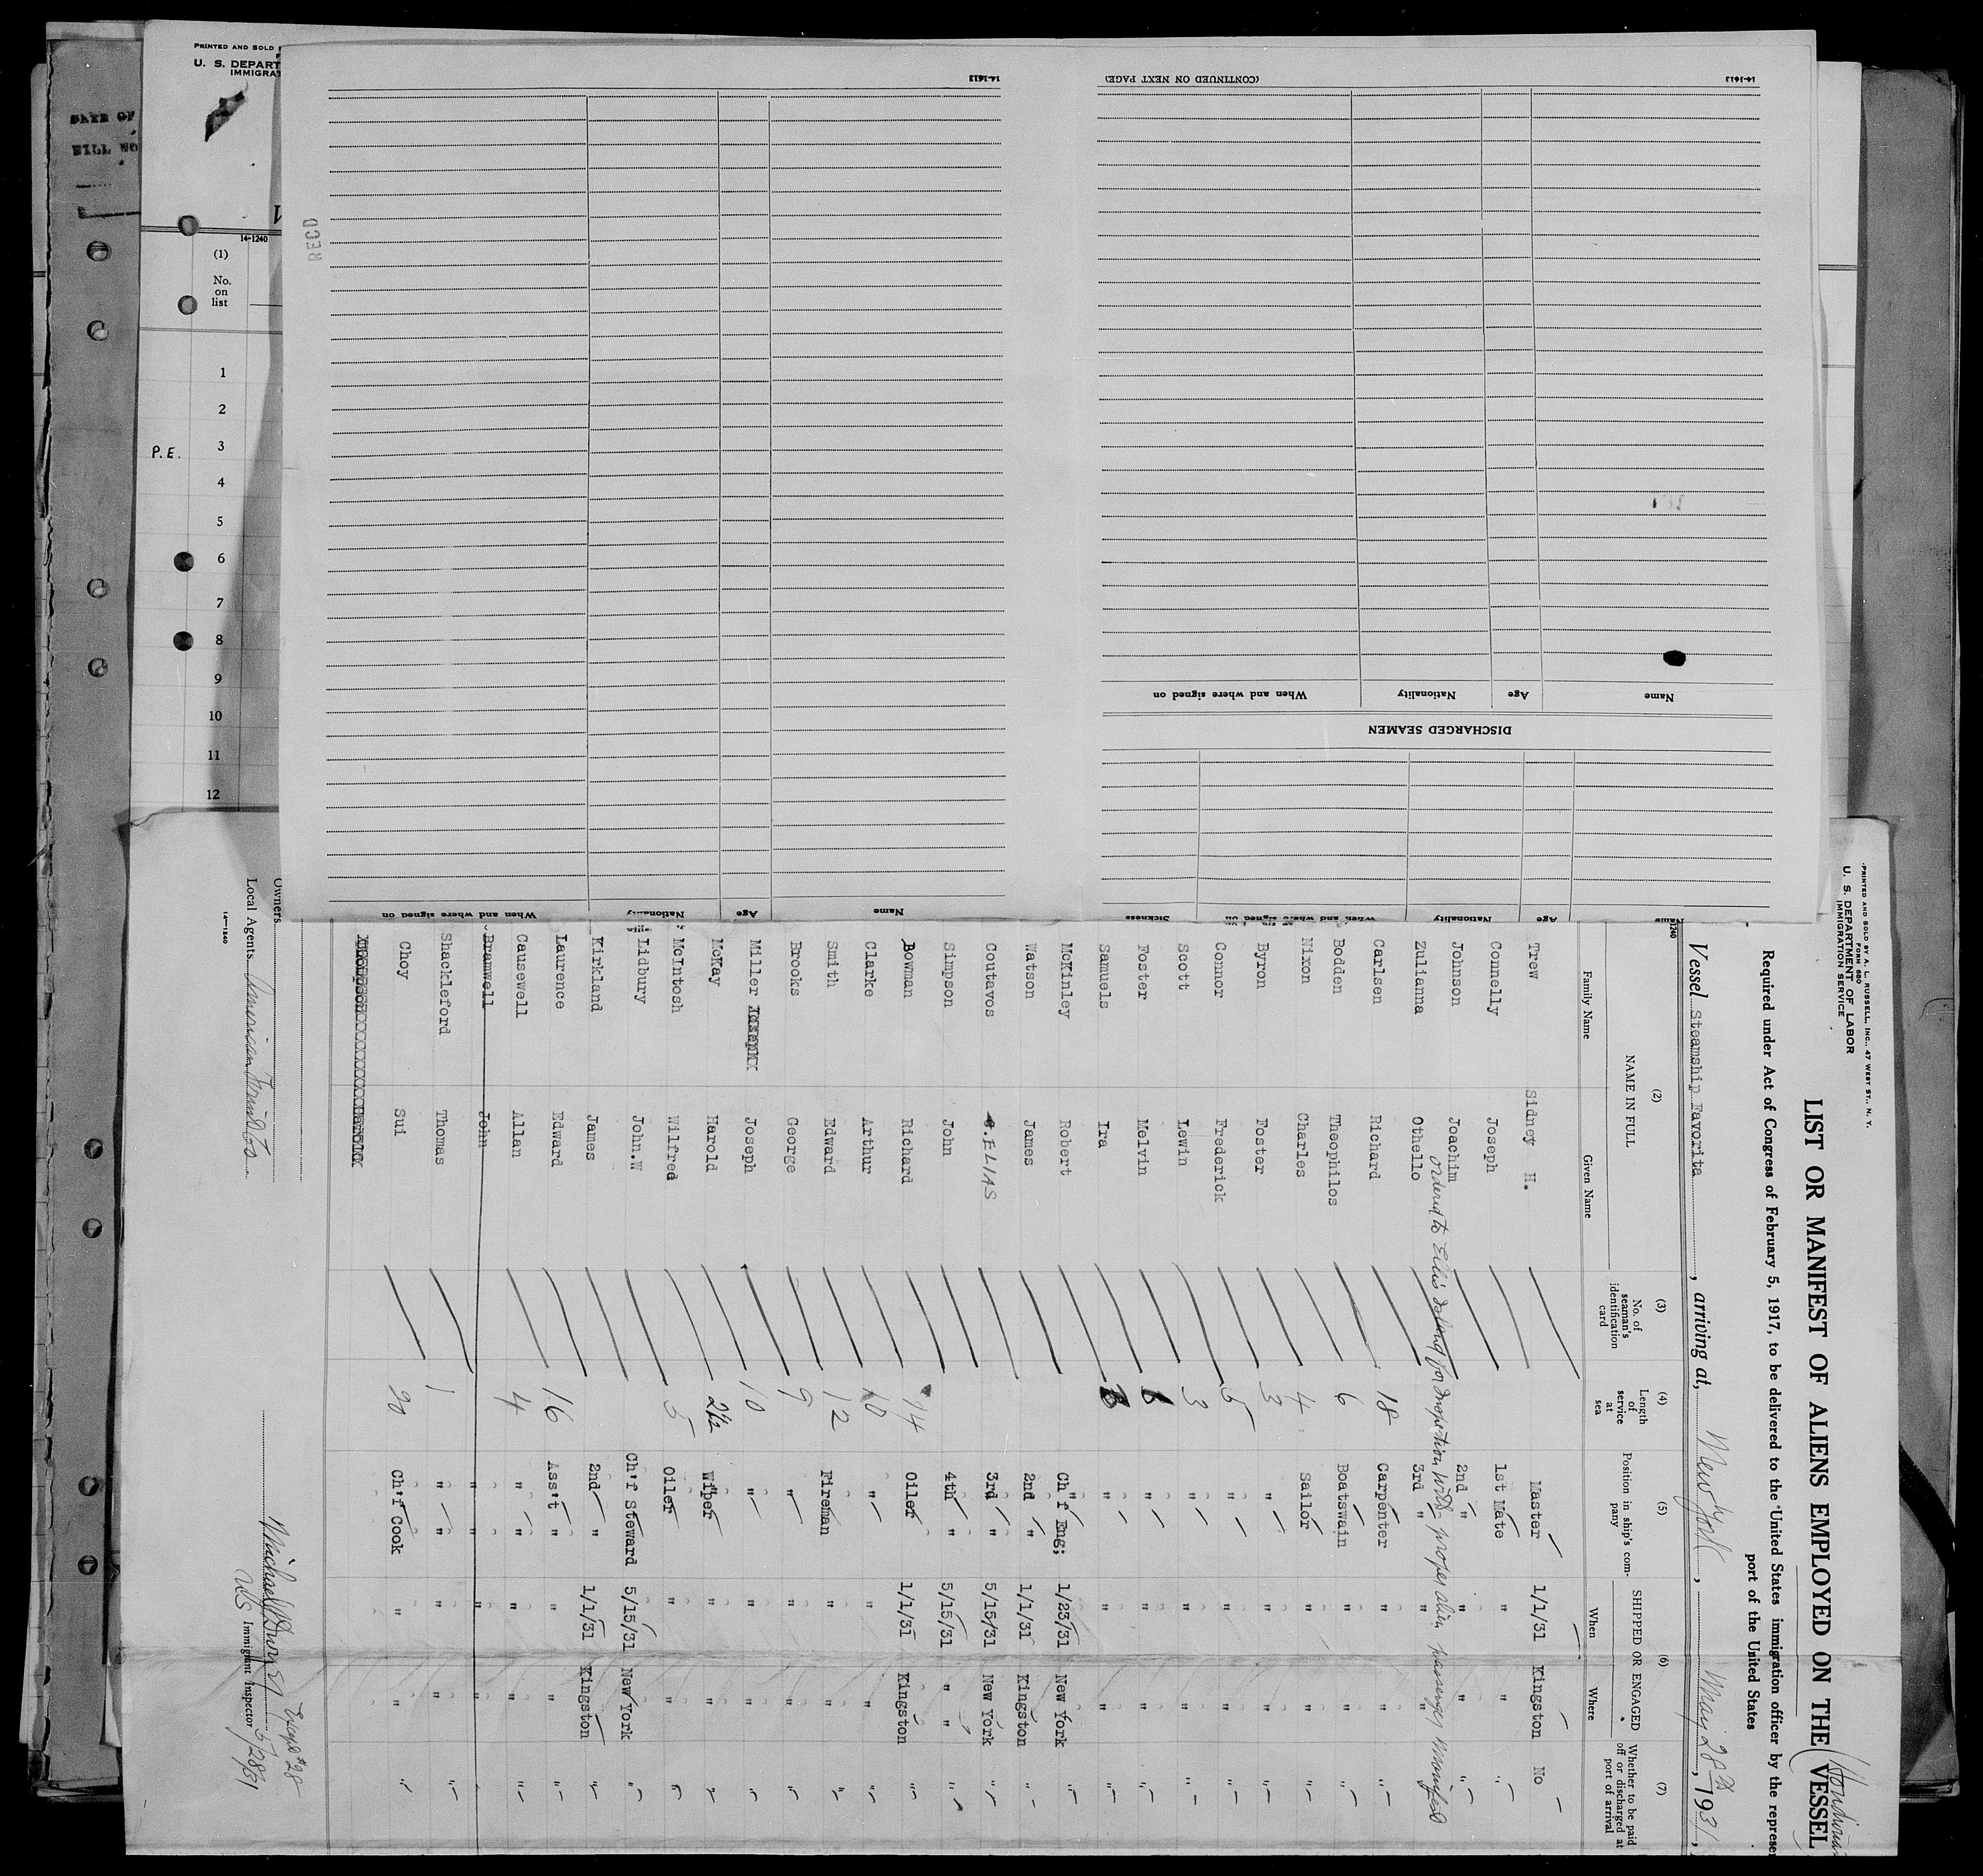 PRINTED AND SOLD
U. S. DEPART
IMMIGRAT
DATE OF
14-1240
(1)
No.
on
list
1
2
P.E. 3
4
5
6
7
8
9
10
11
12
RECD
14-1613
(CONTINUED ON NEXT PAGE)
14-1613
Name Age Nationality When and where signed on
DISCHARGED SEAMEN
Name Age Nationality When and where signed on Sickness
Name Age Nationality When and where signed on
PRINTED AND SOLD BY A. L. RUSSELL, INC., 47 WEST ST., N. Y.
FORM 680
U. S. DEPARTMENT OF LABOR
IMMIGRATION SERVICE
LIST OR MANIFEST OF ALIENS EMPLOYED ON THE VESSEL
Required under Act of Congress of February 5, 1917, to be delivered to the United States immigration officer by the represen
port of the United States
Vessel Steamship Favorita, arriving at, New York, May 28th, 1931,
1240
(2) (3) (4) (5) (6) (7)
NAME IN FULL
Family Name Given Name
No. of seaman's identification card
Length of service at sea
Position in ship's company
SHIPPED OR ENGAGED
When Where
Whether to be paid off or discharged at port of arrival
Trew Sidney H. Master 1/1/31 Kingston No
Connelly Joseph 1st Mate " " "
Johnson Joachim 2nd " " " "
Ordered to Ellis Island for inspection with proper alien passenger manifest
Zulianna Othello 3rd " " "
Carlsen Richard 18 Carpenter " " "
Bodden Theophilos 6 Boatswain " " "
Nixon Charles 4 Sailor " " "
Byron Foster 3 " " " "
Connor Frederick 5 " " " "
Scott Lewin 3 " " " "
Foster Melvin " " " "
Samuels Ira " " " "
McKinley Robert Ch'f Eng; 1/23/31 New York "
Watson James 2nd " 1/1/31 Kingston "
Coutavos ELIAS 3rd " 5/15/31 New York "
Simpson John 4th " 5/15/31 " " "
Bowman Richard 14 Oiler 1/1/31 Kingston "
Clarke Arthur 10 " " " "
Smith Edward 12 Fireman " " "
Brooks George 9 " " " "
Miller Joseph 10 " " " "
McKay Harold 2½ Wiper " " "
McIntosh Wilfred 5 Oiler " " "
Lidbury John.W Ch'f Steward 5/15/31 New York "
Kirkland James 2nd " 1/1/31 Kingston "
Laurence Edward 16 Ass't " " " "
Causewell Allan 4 " " " " "
Bramwell John " " " "
Shackleford Thomas 1 " " " " "
Choy Sui 20 Ch'f Cook " " "
Owners
Local Agents American Fruit Co.
14-1240
Except #28
5/28/31
Immigrant Inspector